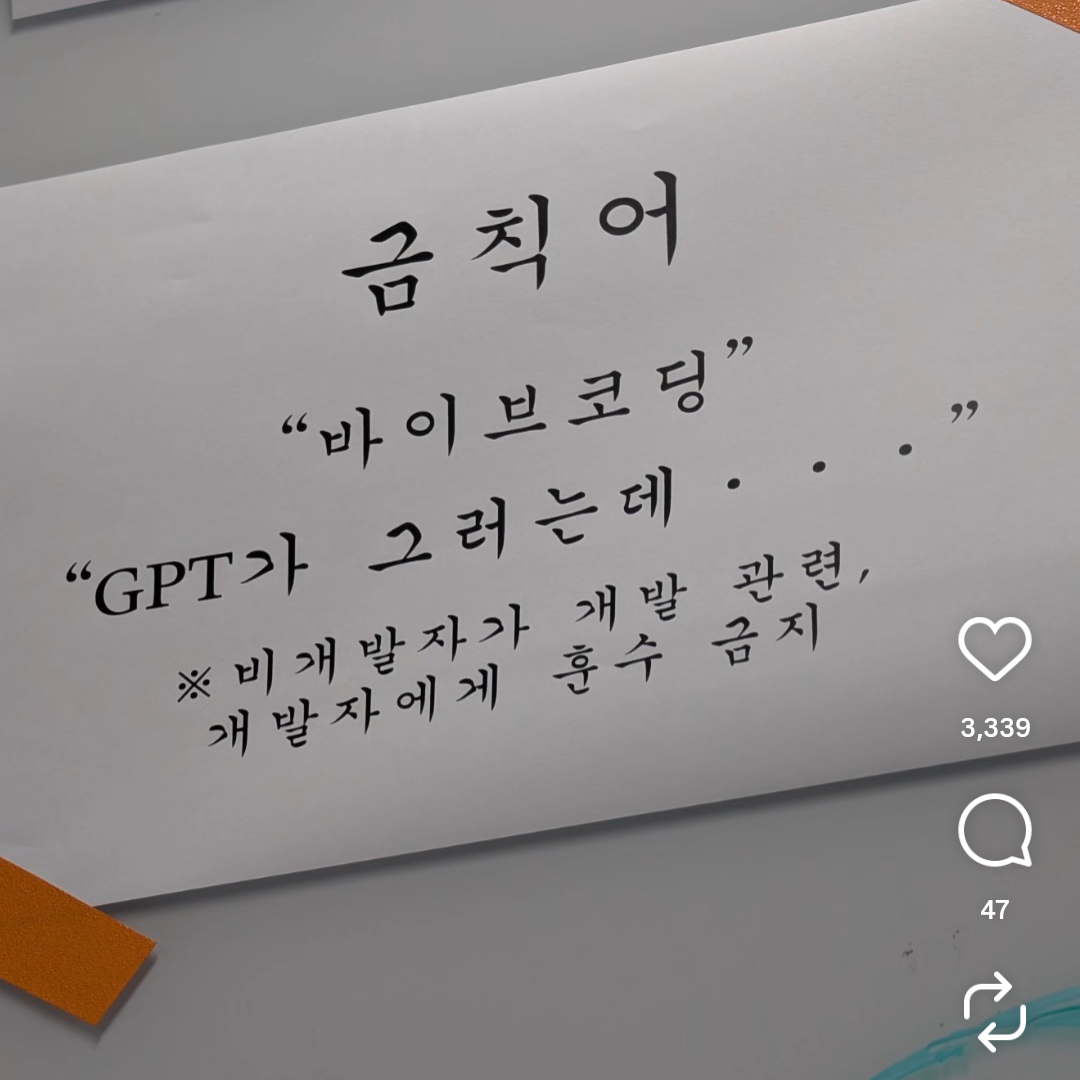 금칙어
“바이브코딩”
“GPT가 그러는데···”
※비개발자가 개발 관련,
개발자에게 훈수 금지
3,339
47